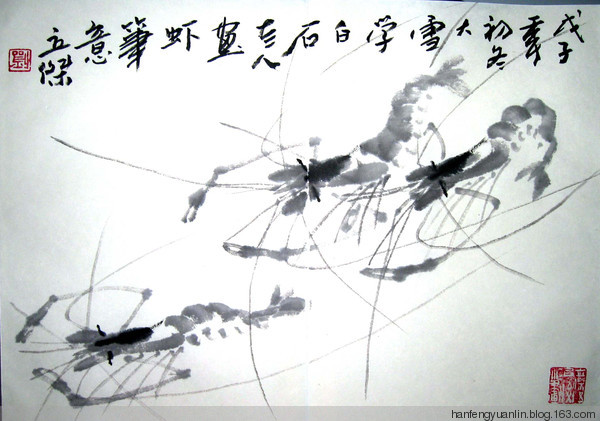 戊子年初冬大雪学白石老人画虾筆意
立傑
hanfengyuanlin.blog.163.com